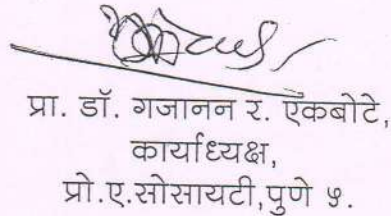 प्रा. डॉ. गजानन र. एकबोटे,
कार्याध्यक्ष,
प्रो.ए.सोसायटी,पुणे ५.